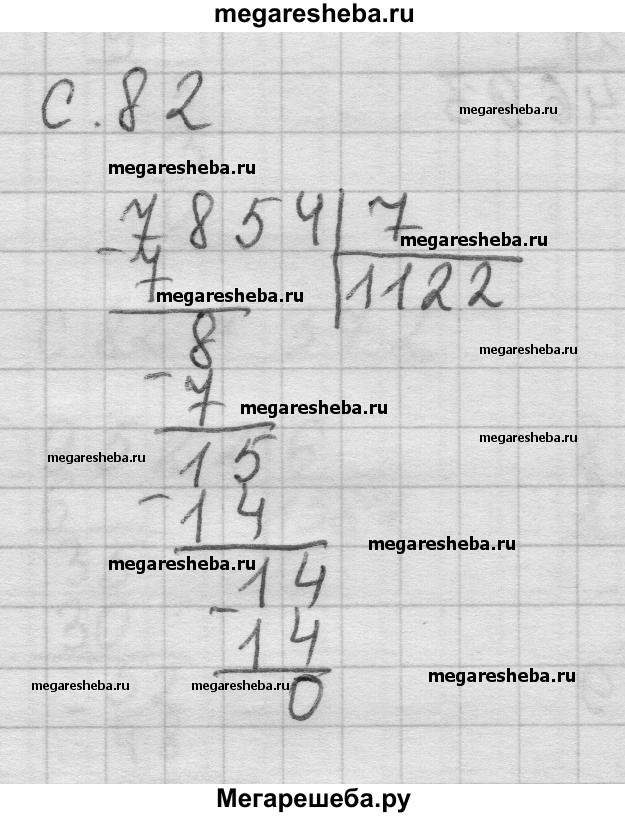 megaresheba.ru
С. 82
megaresheba.ru
megaresheba.ru
7854 | 7
megaresheba.ru
- 7
megaresheba.ru
1122
8
megaresheba.ru
- 7
megaresheba.ru
megaresheba.ru
15
megaresheba.ru
- 14
megaresheba.ru
megaresheba.ru
14
- 14
megaresheba.ru
megaresheba.ru
megaresheba.ru
0
Мегарешеба.ру